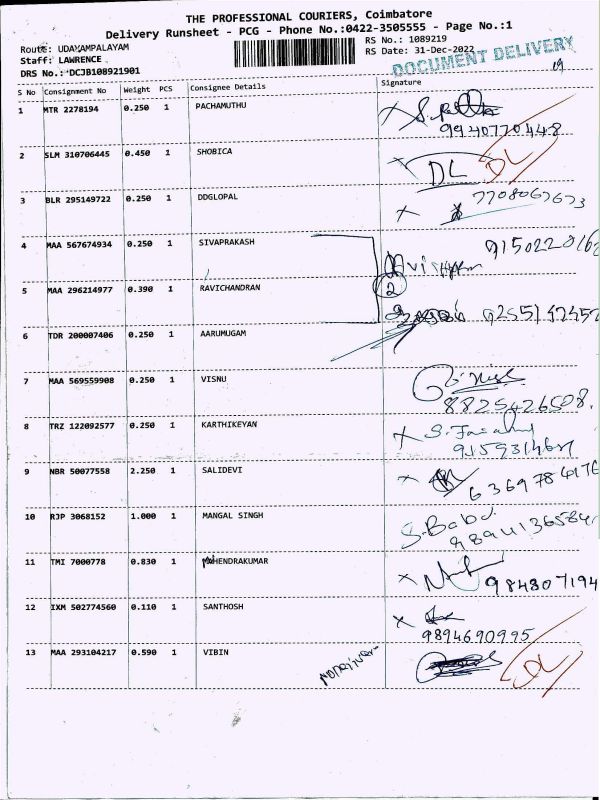 THE PROFESSIONAL COURIERS, Coimbatore
Delivery Runsheet - PCG - Phone No.:0422-3505555 - Page No.:1
Route: UDAYAMPALAYAM
RS No.: 1089219
Staff: LAWRENCE
RS Date: 31-Dec-2022
DRS No.: DCJB108921901
DOCUMENT DELIVERY
19
S No Consignment No Weight PCS Consignee Details Signature
1 MTR 2278194 0.250 1 PACHAMUTHU
9940770448
2 SLM 310706445 0.450 1 SHOBICA DL DL
3 BLR 295149722 0.250 1 DDGLOPAL 7708067673
4 MAA 567674934 0.250 1 SIVAPRAKASH
5 MAA 296214977 0.390 1 RAVICHANDRAN 2
6 TDR 200007406 0.250 1 AARUMUGAM
7 MAA 569559908 0.250 1 VISNU
8825426508
8 TRZ 122092577 0.250 1 KARTHIKEYAN
9 NBR 50077558 2.250 1 SALIDEVI
6369784176
10 RJP 3068152 1.000 1 MANGAL SINGH S. Babu
11 TMI 7000778 0.830 1 MAHENDRAKUMAR
984807194
12 IXM 502774560 0.110 1 SANTHOSH
9894690995
13 MAA 293104217 0.590 1 VIBIN DL